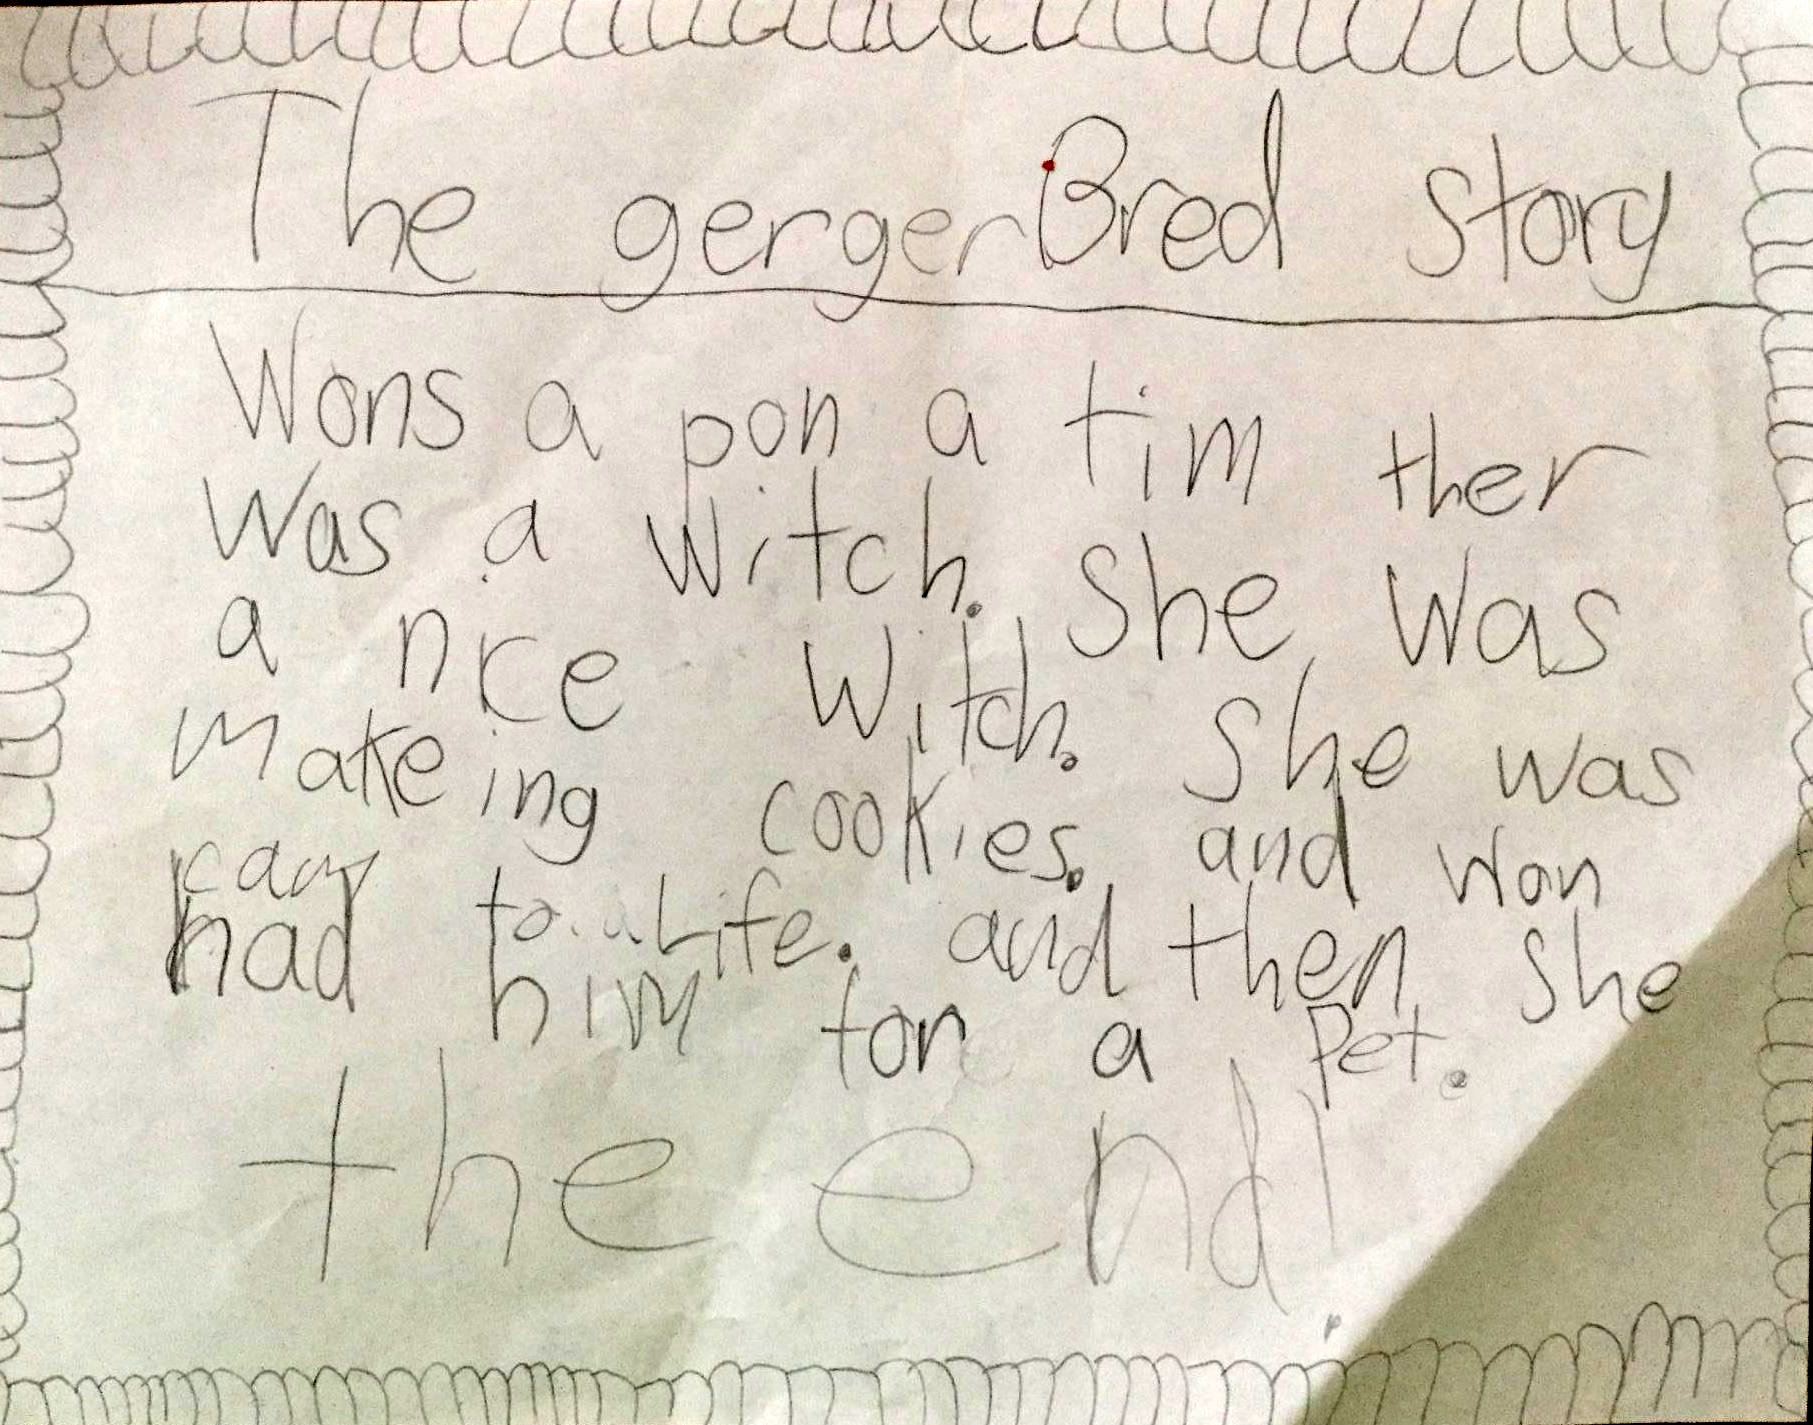 The gergerBred story
Wons a pon a tim ther
was a witch. She was
a nice witch. She was
makeing cookies. and won
cam to a Life. and then she
had him for a Pet.
the end!